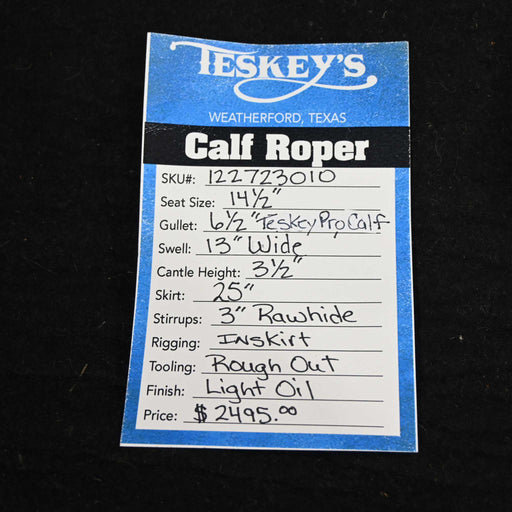 TESKEY'S
WEATHERFORD, TEXAS
Calf Roper
SKU#: 122723010
Seat Size: 14½"
Gullet: 6½" Teskey Pro Calf
Swell: 13" Wide
Cantle Height: 3½"
Skirt: 25"
Stirrups: 3" Rawhide
Rigging: Inskirt
Tooling: Rough Out
Finish: Light Oil
Price: $2495.00